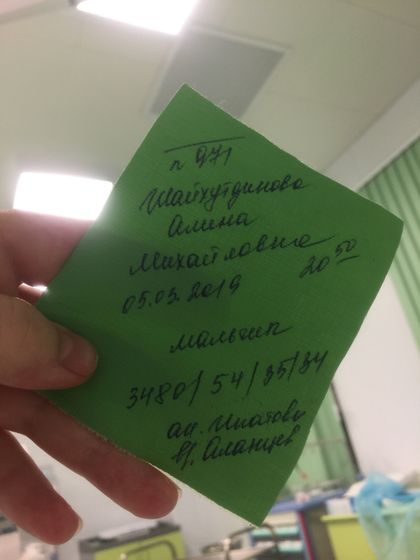 n 971
Шайхутдинова
Алина
Михайловна
05.03.2019 20 50
мальчик
3480/54/35/34
ак. Ипатова
вр. Аланцев